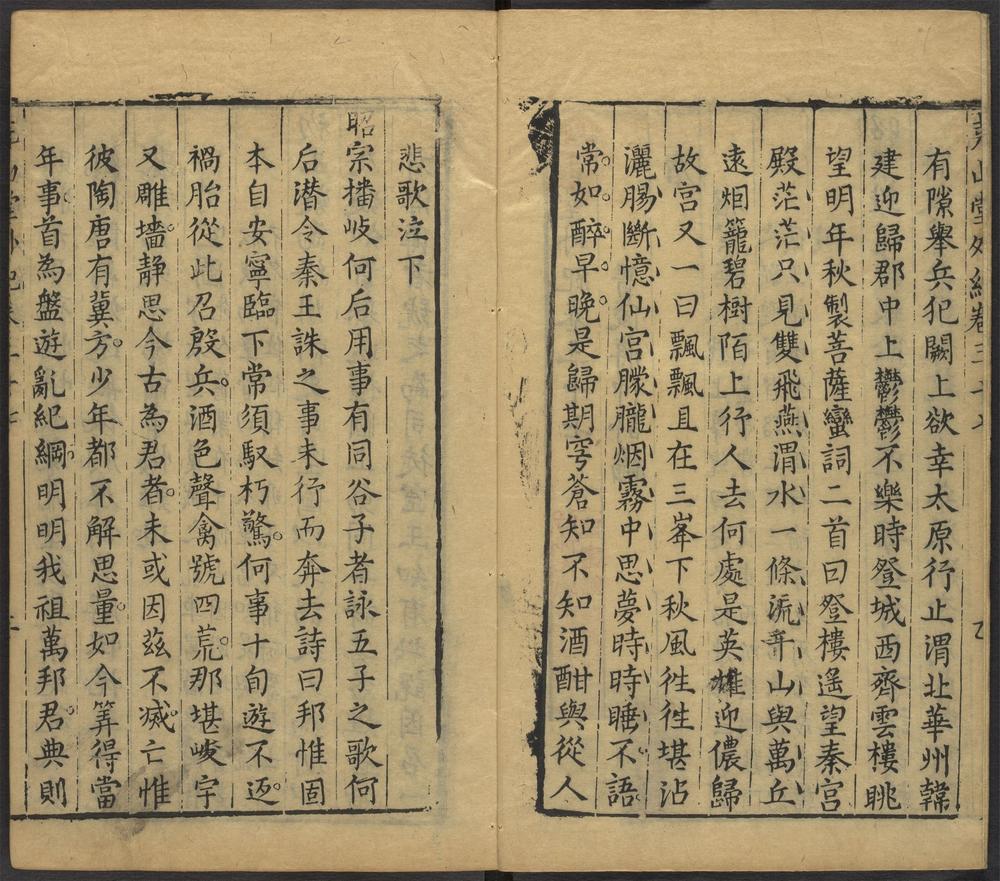 堯山堂外紀卷三十七
有隙舉兵犯闕上欲幸太原行止渭北華州韓
建迎歸郡中上鬱鬱不樂時登城西齊雲樓眺
望明年秋製菩薩蠻詞二首曰登樓遥望秦宫
殿茫茫只見雙飛燕渭水一條流千山與萬丘
遠烟籠碧樹陌上行人去何處是英雄迎儂歸
故宫又一曰飄飄且在三峯下秋風徃徃堪沾
灑腸斷憶仙宫朦朧烟霧中思夢時時睡不語
常如醉早晚是歸期穹蒼知不知酒酣與從人
悲歌泣下
昭宗播岐何后用事有同谷子者詠五子之歌何
后潜令秦王誅之事未行而奔去詩曰邦惟固
本自安寧臨下常須馭朽驚何事十旬遊不返
禍胎從此召殷兵酒色聲禽號四荒那堪峻宇
又雕墻静思今古為君者未或因兹不滅亡惟
彼陶唐有冀方少年都不解思量如今筭得當
年事首為盤遊亂紀綱明明我祖萬邦君典則